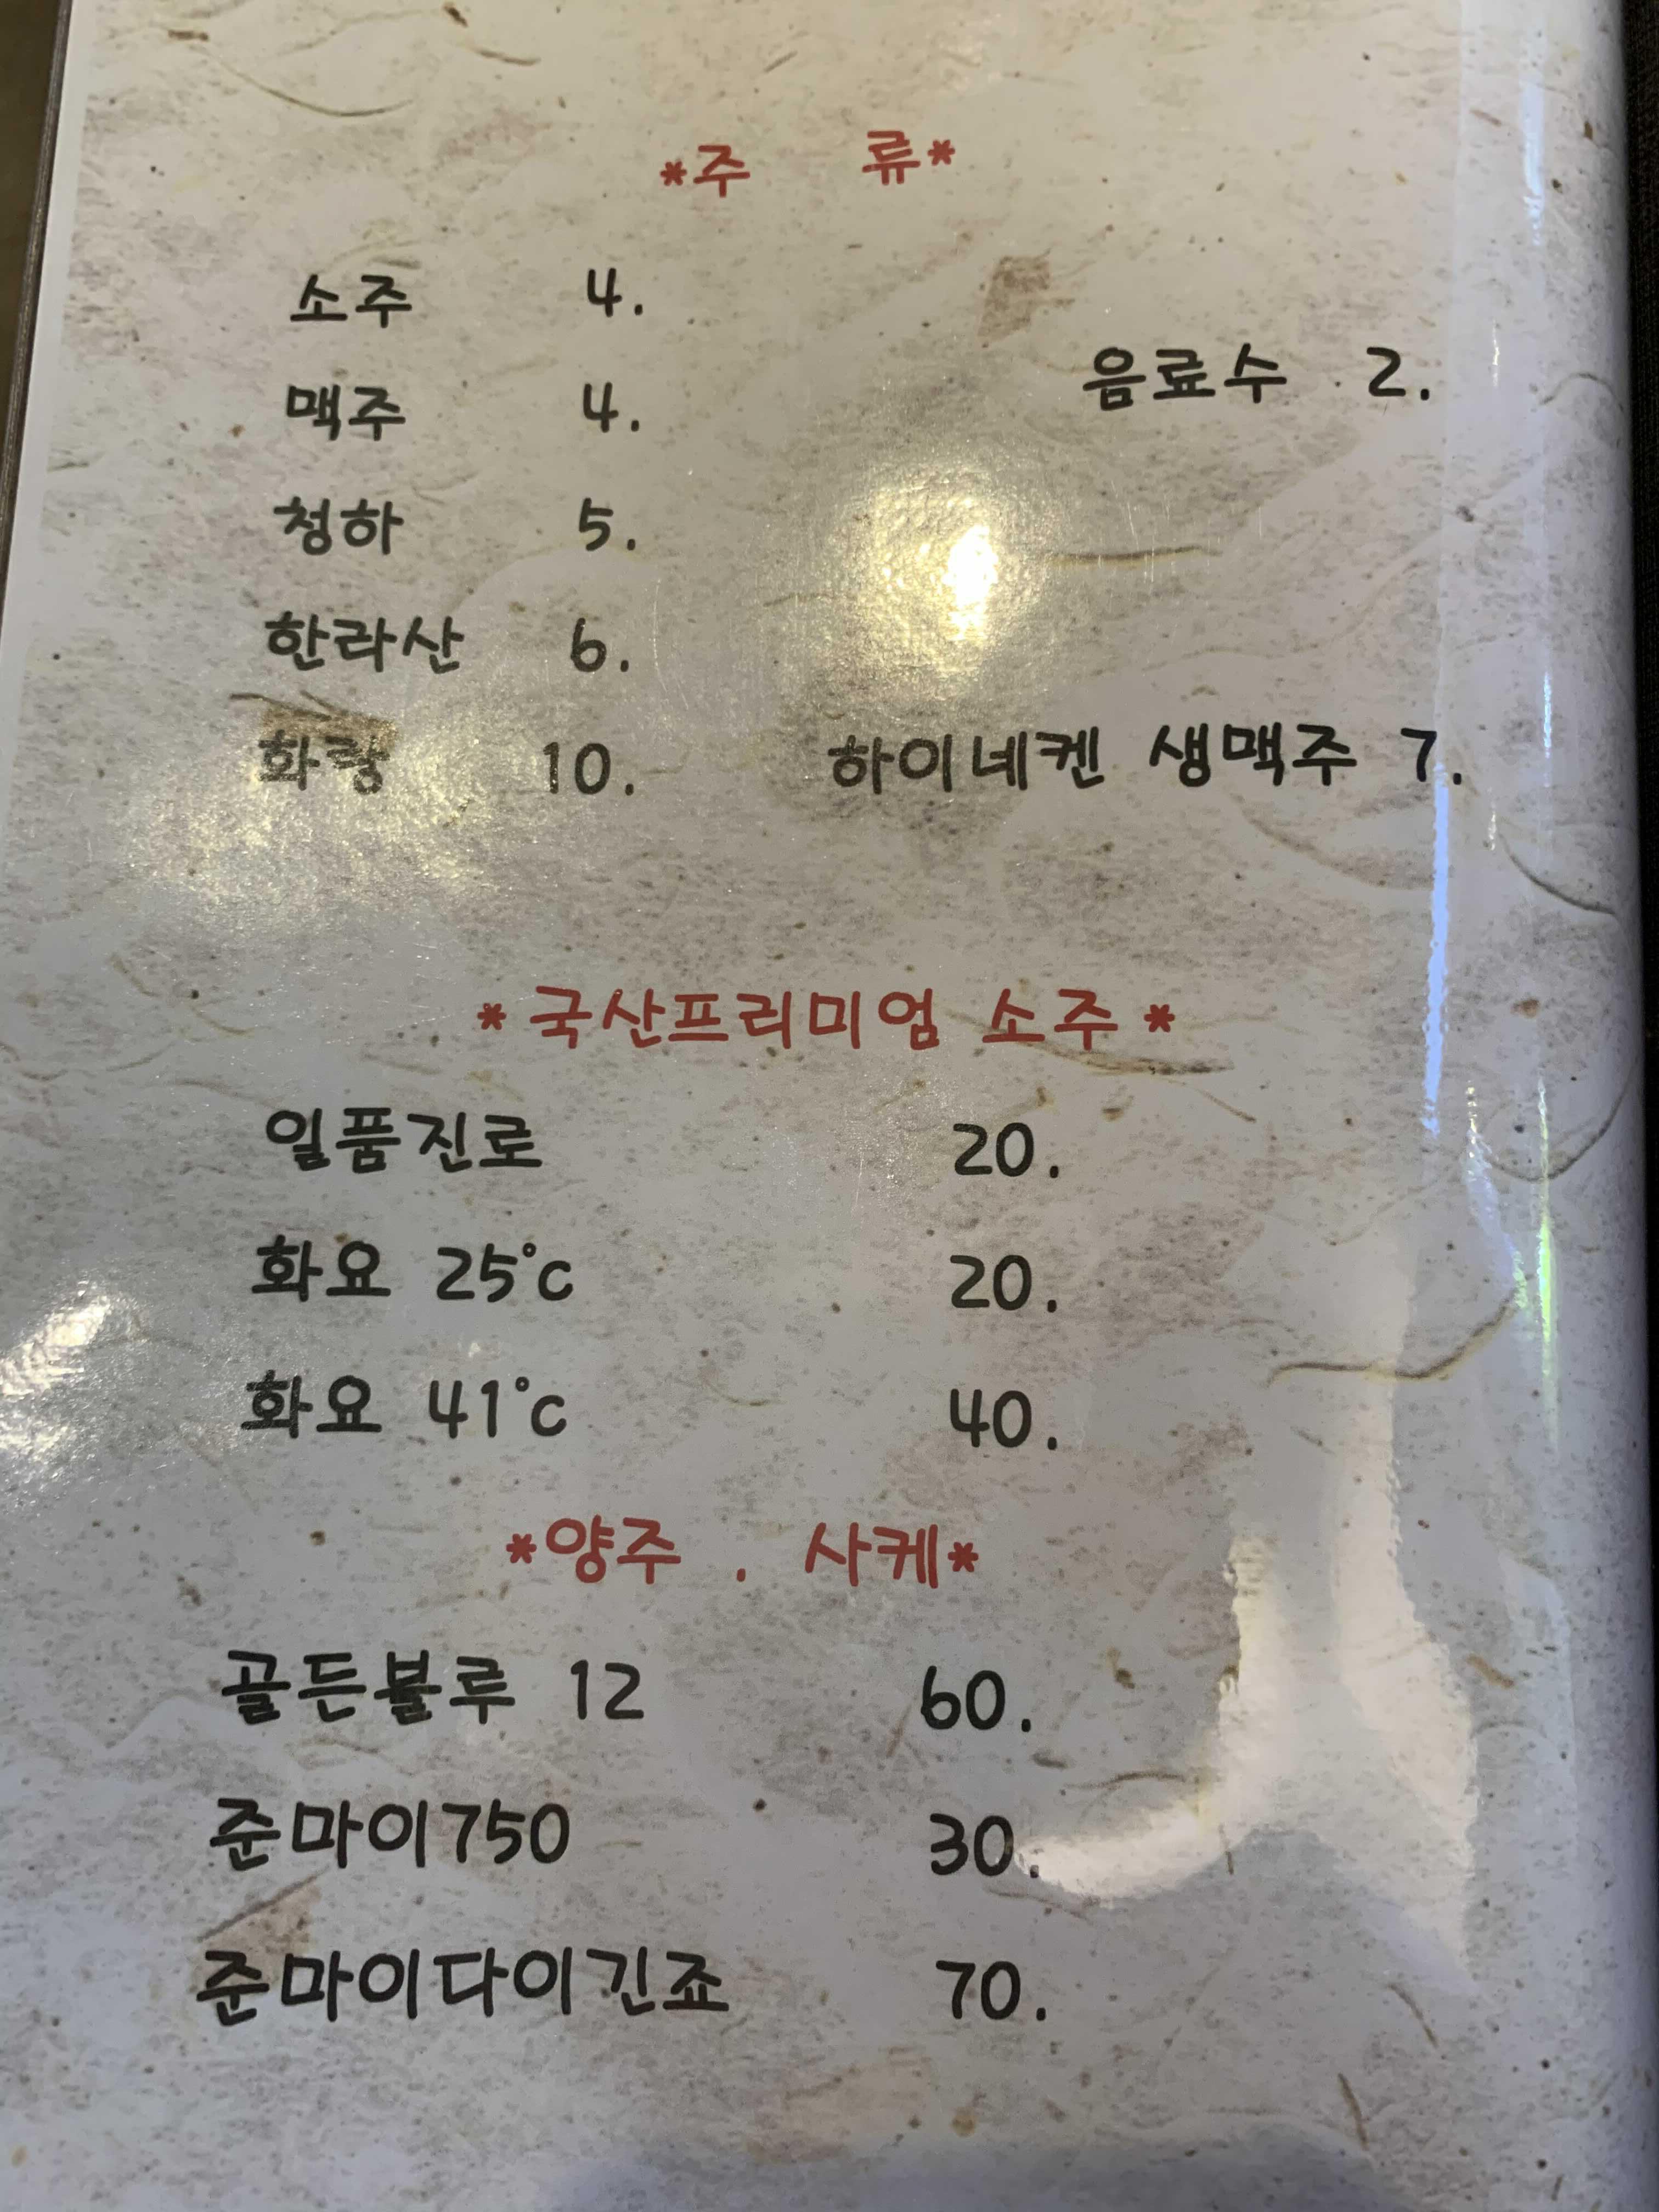 *주 류*
소주 4.
음료수 2.
맥주 4.
청하 5.
한라산 6.
화랑 10.
하이네켄 생맥주 7.
*국산프리미엄 소주*
일품진로 20.
화요 25°c 20.
화요 41°c 40.
*양주 . 사케*
골든블루 12 60.
준마이750 30.
준마이다이긴죠 70.